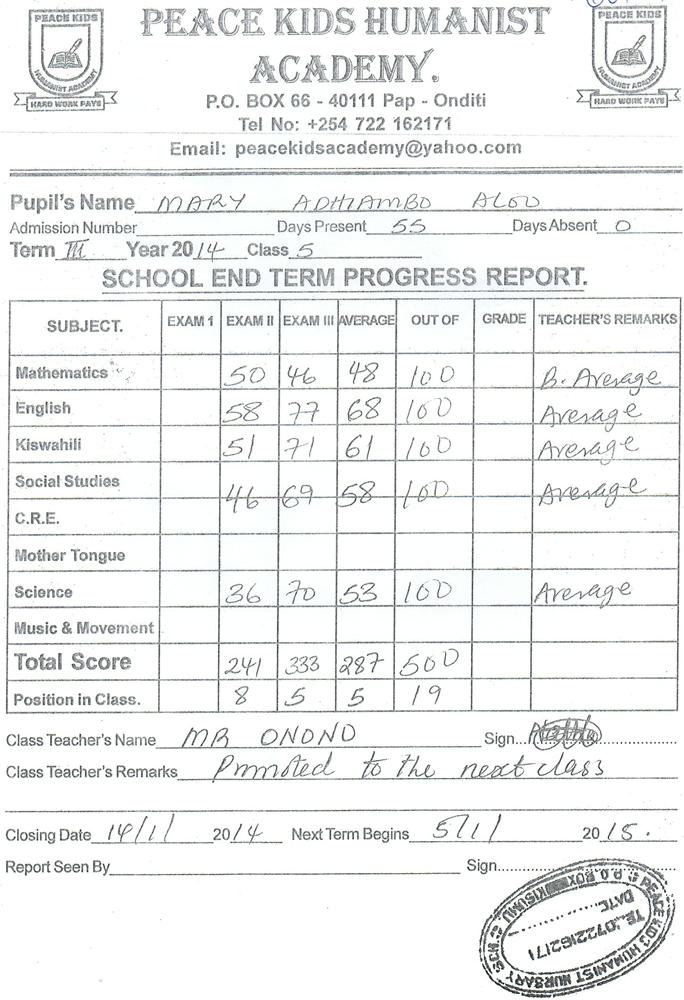 PEACE KIDS
HUMANIST ACADEMY
HARD WORK PAYS
PEACE KIDS HUMANIST
ACADEMY.
P.O. BOX 66 - 40111 Pap - Onditi
Tel No: +254 722 162171
Email: peacekidsacademy@yahoo.com
PEACE KIDS
HUMANIST ACADEMY
HARD WORK PAYS
Pupil's Name MARY ADHIAMBO ALOO
Admission Number Days Present 55 Days Absent 0
Term III Year 2014 Class 5
SCHOOL END TERM PROGRESS REPORT.
SUBJECT. EXAM 1 EXAM II EXAM III AVERAGE OUT OF GRADE TEACHER'S REMARKS
Mathematics 50 46 48 100 B. Average
English 58 77 68 100 Average
Kiswahili 51 71 61 100 Average
Social Studies 46 69 58 100 Average
C.R.E.
Mother Tongue
Science 36 70 53 100 Average
Music & Movement
Total Score 241 333 287 500
Position in Class. 8 5 5 19
Class Teacher's Name MR ONONO Sign...
Class Teacher's Remarks Promoted to the next class
Closing Date 14/11/ 2014 Next Term Begins 5/1/ 2015.
Report Seen By Sign...
PEACE KIDS HUMANIST NURSARY SCH.
P.O. BOX KISUMU
DATE
TEL:0722162171